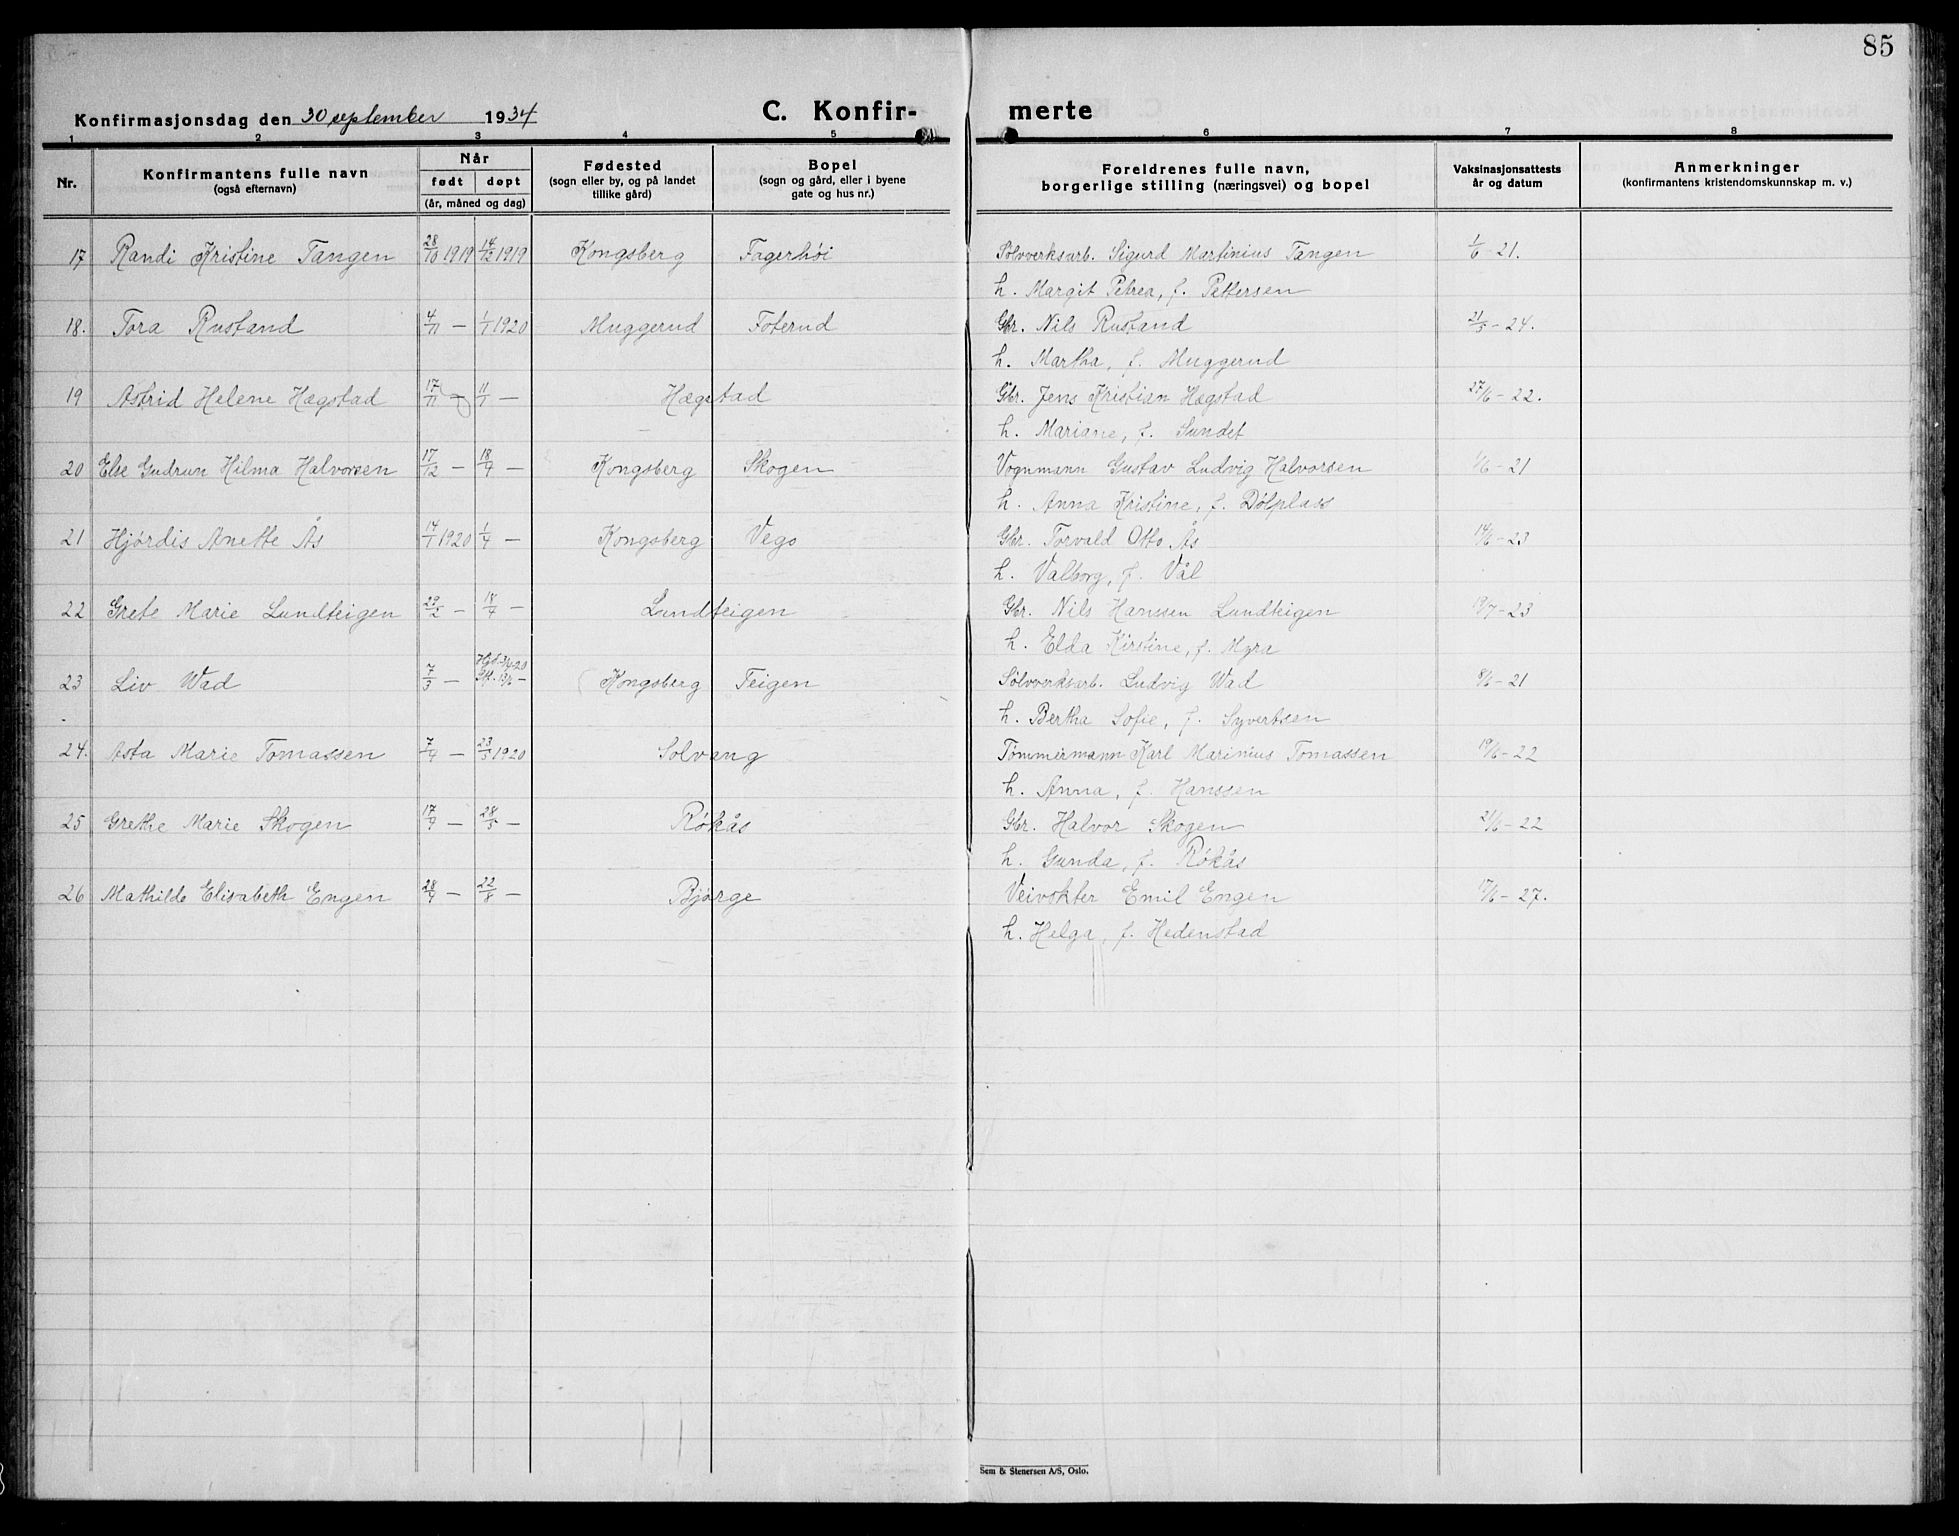 85
Konfirmasjonsdag den 30 september 1934
C. Konfir-
merte
1 2 3 4 5 6 7 8
Nr.
Konfirmantens fulle navn
(også efternavn)
Når
født døpt
(år, måned og dag)
Fødested
(sogn eller by, og på landet
tillike gård)
Bopel
(sogn og gård, eller i byene
gate og hus nr.)
Foreldrenes fulle navn,
borgerlige stilling (næringsvei) og bopel
Vaksinasjonsattests
år og datum
Anmerkninger
(konfirmantens kristendomskunnskap m. v.)
17 Randi Kristine Tangen 28/10 1919 14/12 1919 Kongsberg Fagerhøi Sølvverksarb. Sigurd Martinius Tangen 1/6 - 21.
h. Margit Petrea, f. Pettersen
18. Tora Rustand 4/11 — 1/1 1920 Muggerud Foterud Gbr. Nils Rustand 21/5 - 24.
h. Martha, f. Muggerud
19 Astrid Helene Hægstad 17/11 — 11/1 — Hægstad Gbr. Jens Kristian Hægstad 27/6 - 22.
h. Mariane, f. Sundet
20 Else Gudrun Hilma Halvorsen 17/12 — 18/4 — Kongsberg Skogen Vognmann Gustav Ludvig Halvorsen 1/6 - 21
h. Anna Kristine, f. Dølplass
21 Hjørdis Anette Ås 14/1 1920 1/4 — Kongsberg Vego Gbr. Torvald Otto Ås 14/6 - 23
h. Valborg, f. Vål
22 Grete Marie Lundteigen 29/2 — 18/4 — Lundteigen Gbr. Nils Hanssen Lundteigen /7 - 23
h. Elda Kirstine, f. Myra
23 Liv Wad 7/3 — Kongsberg Teigen Sølvverksarb. Ludvig Wad 8/6 - 21
h. Bertha Sofie, f. Syvertsen
24. Asta Marie Tomassen 7/4 — 23/5 1920 Solvang Tømmermann Karl Marinius Tomassen 19/6 - 22
h. Anna, f. Hanssen
25 Grethe Marie Skogen 17/4 — 28/5 — Røkås Gbr. Halvor Skogen 21/6 - 22
h. Gunda, f. Røkås
26 Mathilde Elisabeth Engen 28/4 — 22/8 — Bjørge Veivokter Emil Engen 17/6 - 27.
h. Helga, f. Hedenstad
Sem & Stenersen A/S, Oslo.